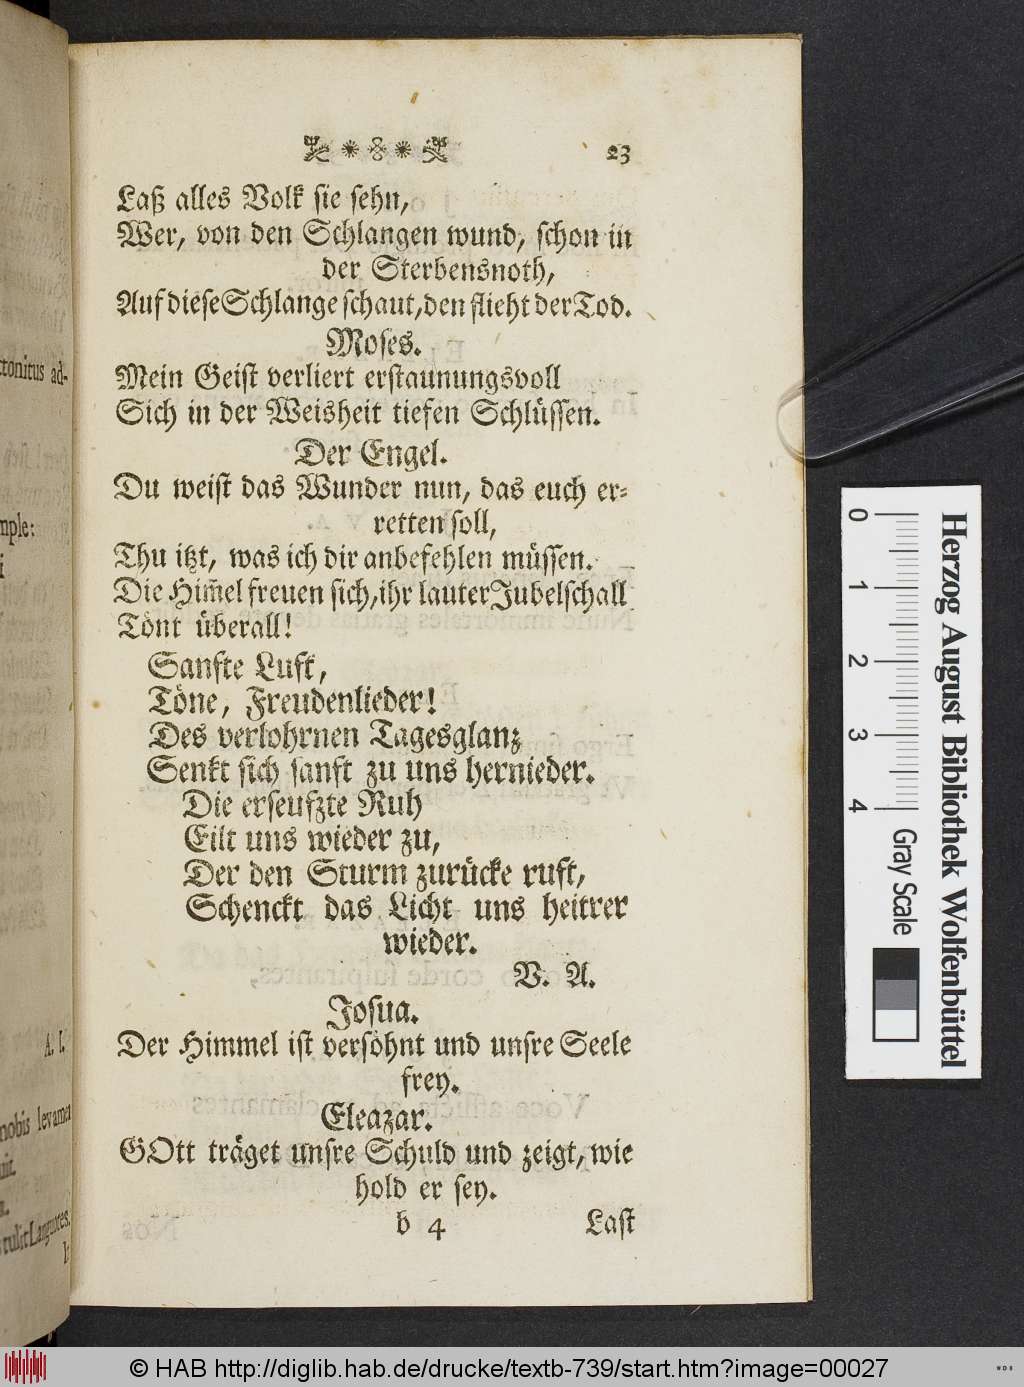 23
Laß alles Volk sie sehn,
Wer, von den Schlangen wund, schon in
der Sterbensnoth,
Auf diese Schlange schaut, den flieht der Tod.
Moses.
Mein Geist verliert erstaunungsvoll
Sich in der Weisheit tiefen Schlüssen.
Der Engel.
Du weist das Wunder nun, das euch er-
retten soll,
Thu itzt, was ich dir anbefehlen müssen.
Die Him̃el freuen sich, ihr lauter Jubelschall
Tönt überall!
Sanfte Luft,
Töne, Freudenlieder!
Des verlohrnen Tagesglanz
Senkt sich sanft zu uns hernieder.
Die erseufzte Ruh
Eilt uns wieder zu,
Der den Sturm zurücke ruft,
Schenckt das Licht uns heitrer
wieder.
V. A.
Josua.
Der Himmel ist versöhnt und unsre Seele
frey.
Eleazar.
GOtt träget unsre Schuld und zeigt, wie
hold er sey.
b 4 Last
ctonitus ad-
mple:
i
A. I.
nobis levamen
uit.
tulit Languores.
0 1 2 3 4
Gray Scale
Herzog August Bibliothek Wolfenbüttel
© HAB http://diglib.hab.de/drucke/textb-739/start.htm?image=00027